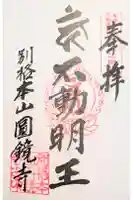 奉拝
不動明王
別格本山圓鏡寺